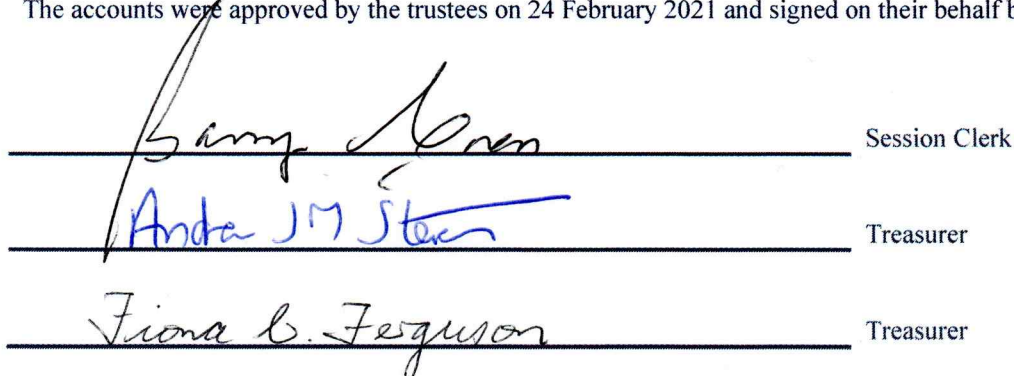 The accounts were approved by the trustees on 24 February 2021 and signed on their behalf b
Barry Session Clerk
JM Treasurer
Fiona C. Ferguson Treasurer